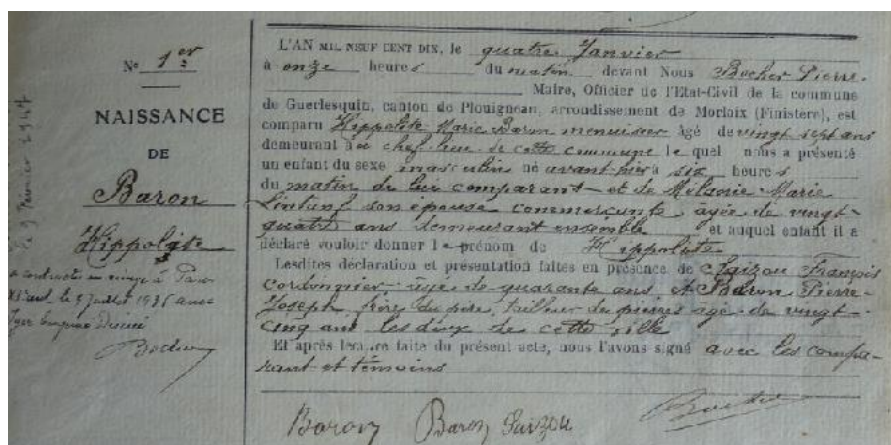 N° 1er
NAISSANCE
DE
Baron
Hippolyte
a contracté mariage à Paris
le 9 juillet 1935 avec
L'AN MIL NEUF CENT DIX, le quatre Janvier
à onze heures du matin devant Nous Bocher Pierre
Maire, Officier de l'Etat-Civil de la commune
de Guerlesquin, canton de Plouigneau, arrondissement de Morlaix (Finistère), est
comparu Hippolyte Marie Baron menuisier âgé de vingt sept ans
demeurant au chef-lieu de cette commune le quel nous a présenté
un enfant du sexe masculin né avant-hier à six heures
du matin de lui comparant et de Mélanie Marie
son épouse commerçante âgée de vingt-
quatre ans demeurant ensemble et auquel enfant il a
déclaré vouloir donner le prénom de Hippolyte
Lesdites déclaration et présentation faites en présence de François
cordonnier âgé de quarante ans et Baron Pierre-
Joseph frère du père, tailleur de pierres âgé de vingt-
cinq ans les deux de cette ville
Et après lecture faite du présent acte, nous l'avons signé avec les compa-
rant et témoins
Baron Baron